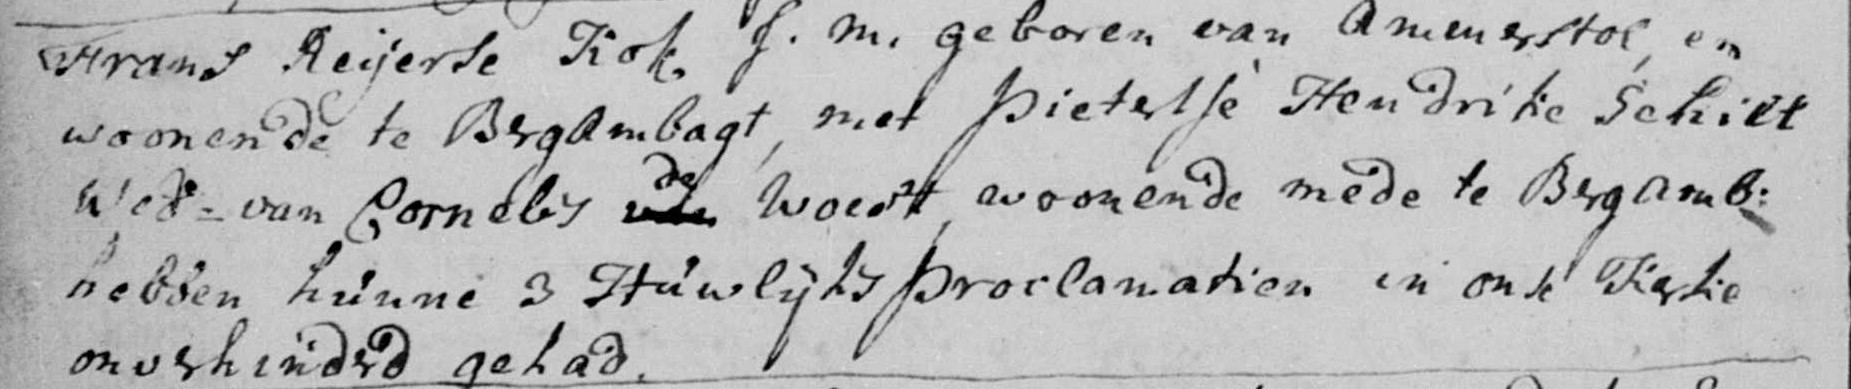 Frans Reijerse Kok, J. m. geboren van Amenerstol, en
woonende te Bergambagt, met Pietertje Hendrikse Schilt
Wed:- van Cornelis de Woedt, woonende mede te Bergamb:
hebben hunne 3 Huwlijks Proclamatien in onse Kerke
onverhinderd gehad.